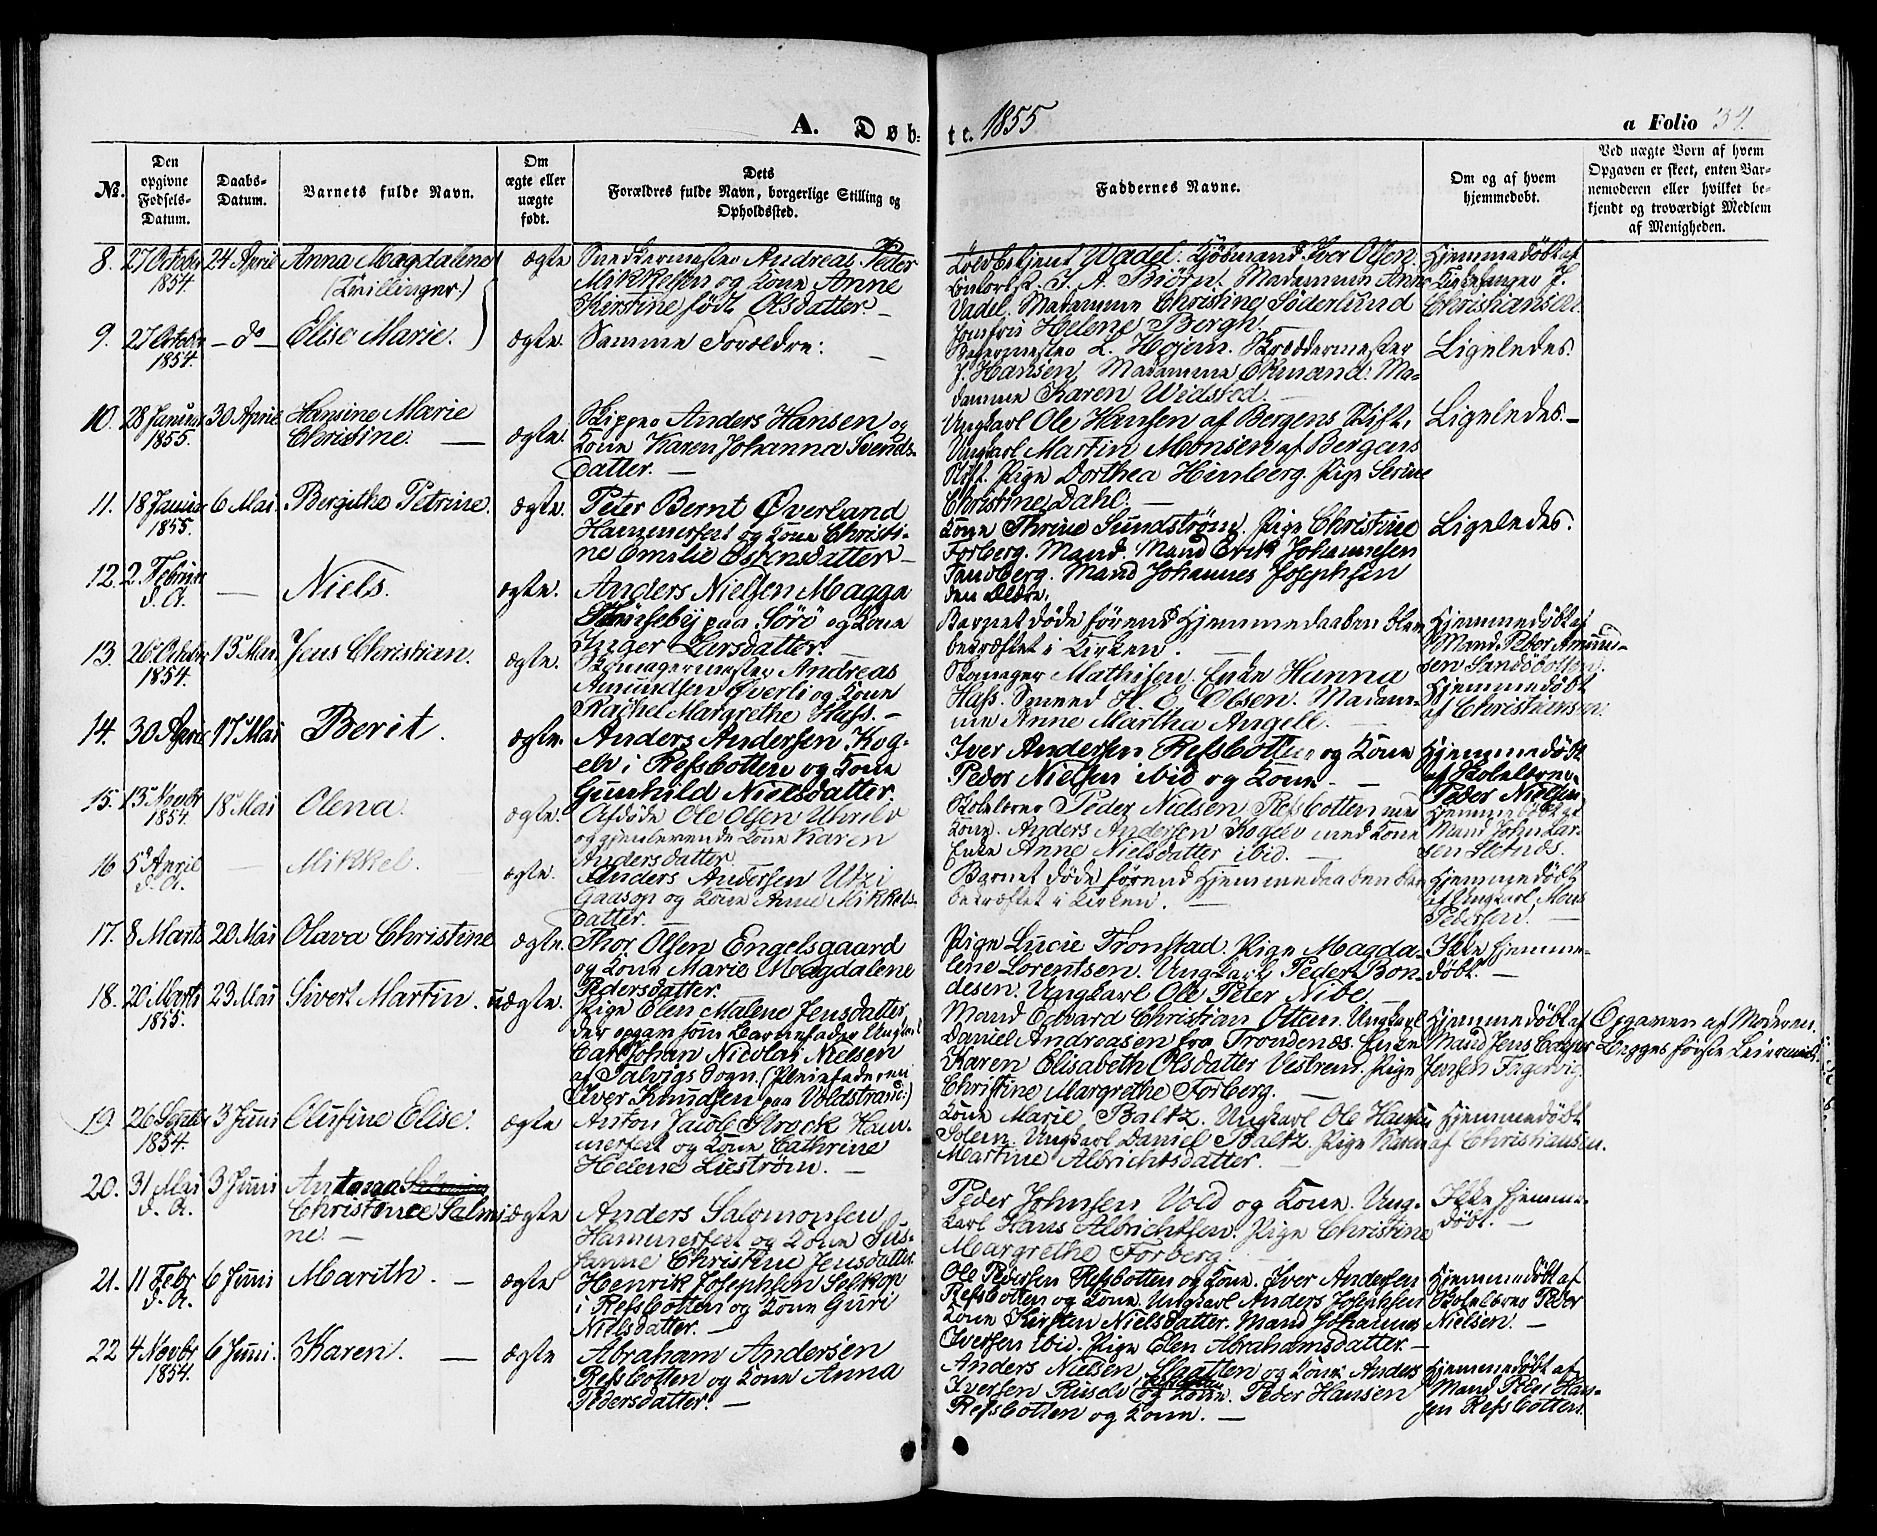 A. Døb-
te. 1855
a Folio 34.
No.
Den opgivne Fødsels-Datum.
Daabs-Datum.
Barnets fulde Navn.
Om ægte eller uægte født.
Dets Forældres fulde Navn, borgerlige Stilling og Opholdssted.
Faddernes Navne.
Om og af hvem hjemmedøbt.
Ved uægte Born af hvem Opgaven er skeet, enten Barnemoderen eller hvilket bekjendt og troværdigt Medlem af Menigheden.
8. 27 October 1854. 24 April Anna Magdalene (Tvillinger.) ægte
Snedkermester Andreas Peter
Mikkelsen og Kone Anne
Kirstine født Olsdatter.
Toldbetjent Wadel. Kjöbmand Iver Olsen.
J. A. Biörn. Madammen Anne
Vadel. Madamme Christine Söderlund
Jomfru Helene Bergh.
Hjemmedøbt af
Kirkesanger J.
Christiansen.
9. 27 October 1854. - do - Elise Marie. ægte. Samme Forældre:
Bagermester L. Højem. Skræddermester
J. Hansen. Madamme Ekmand. Ma-
damme Karen Widsted.
Ligeledes.
10. 28 Januar 1855. 30 April Hansine Marie
Christine. ægte.
Skipper Anders Hansen og
Kone Karen Johanna Svends-
datter.
Ungkarl Ole Hansen af Bergens Stift,
Ungkarl Martin Monsen af Bergens
Stift. Pige Dorthea Himberg. Pige Serine
Christine Dahl.
Ligeledes.
11. 18 Januar 1855. 6 Mai Bergithe Petrine. ægte.
Peter Bernt Øverland
Hammerfest og Kone Christi-
ne Emilie Espensdatter
Kone Thrine Sundstrøm. Pige Christine
Forberg. Mand. Mand Erik Johannesen
Tandberg. Mand Johannes Josephsen
den Ældre.
Ligeledes.
12. 2. Februar d. A. — Niels. ægte.
Anders Nielsen Magga
paa Sörö og Kone
Inger Larsdatter.
Barnet döde förend Hjemmedaaben blev
bekræftet i Kirken.
Hjemmedøbt af
Mand Peder Amund-
sen Sandöbotten.
13. 26 October 1854. 13 Mai Jens Christian. ægte.
Skomagermester Andreas
Amundsen Øverli og Kone
Rachel Margrethe Hass.
Skomager Mathisen. Enke Hanna
Hass. Smeed H. E. Olsen. Madam-
me Anne Martha Angell.
Hjemmedøbt
af Christiansen.
14. 30 April 17 Mai Berit. ægte.
Anders Andersen Kog-
elv i Refsbotten og Kone
Gunhild Nielsdatter
Iver Andersen Refsbotten og Kone
Peder Nielsen ibid og Kone.
Hjemmedøbt
af Skolelærer
Peder Nielsen
15. 13 Novbr 1854. 18 Mai Olena. ægte.
Afdøde Ole Olsen
og gjenlevende Kone Karen
Andersdatter.
Skolelærer Peder Nielsen Refsbotten med
Kone. Anders Andersen Kogelv med Kone
Enke Anne Nielsdatter ibid.
Hjemmedøbt af
Mand John Lar-
sen Sletnes.
16 5 April d. A. — Mikkel. ægte.
Anders Andersen Utzi
Gaasop og Kone Anne Mikkels-
datter.
Barnet döde förend Hjemmedaaben blev
bekræftet i Kirken.
Hjemmedøbt
af Ungkarl Mons
Pedersen.
17. 8 Marts 20 Mai Olava Christine ægte.
Thor Olsen Engelsgaard
og Kone Marie Magdalene
Pedersdatter.
Pige Lucie Tronstad. Pige Magda-
lene Lorentsen. Ungkarl Peder Bon-
desen. Ungkarl Ole Peter Nibe.
Ikke hjemme-
døbt.
18. 20 Marts 1855. 23 Mai Sivert Martin. uægte.
Pige Elen Malene Jensdatter
der opgav som Barnefader Ungkarl
Carl Johan Nicolai Nielsen
af Talvigs Sogn. (Pleiefaderen
Iver Knudsen paa Voldstrand.)
Mand Edvard Christian Otten. Ungkarl
Daniel Andreasen fra Trondenæs. Enke
Karen Elisabeth Olsdatter Vestrem. Pige
Christine Margrethe Forberg.
Hjemmedøbt af
Mand Jens
Jensen Fagervig
Opgaven af Moderen.
Begges förste Leiermaal.
19. 26 Septbr 1854. 3 Juni Olufine Elise. ægte
Anton Jacob Strock Ham-
merfest og Kone Cathrine
Helene Liestrøm.
Kone Marie Baltz. Ungkarl Ole Hansen
Solem. Ungkarl Daniel Baltz. Pige Karen
Martine Albrichtsdatter.
Hjemmedøbt
af Christiansen.
20. 31 Mai d. A. 3 Juni Antona
Christence Salmi-
ne. ægte
Anders Salomonsen
Hammerfest og Kone Sus-
sanne Christine Jensdatter.
Peder Johnsen Vold og Kone. Ung-
karl Hans Albrichtsen. Pige Christine
Margrethe Forberg.
Ikke hjemme-
døbt.
21. 11 Febr d. A. 6 Juni Marith. ægte
Henrik Josephsen Selkop
i Refsbotten og Kone Guri
Nielsdatter.
Ole Pedersen Refsbotten og Kone. Iver Andersen
Refsbotten og Kone. Ungkarl Anders Josephsen
Kone Kirsten Nielsdatter. Mand Johannes
Iversen ibid. Pige Elen Abrahamsdatter.
Hjemmedøbt af
Skolelærer Peder
Nielsen.
22 4 Novbr 1854. 6 Juni. Karen. ægte
Abraham Andersen
Refsbotten og Kone Anna
Pedersdatter.
Anders Nielsen Slaatten og Kone. Anders
Iversen Russelv og Kone. Peder Hansen
Refsbotten og Kone.
Hjemmedøbt af
Mand Peder Han-
sen Refsbotten.